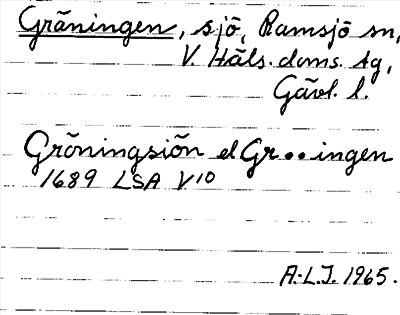 Gräningen, sjö, Ramsjö sn,
V. Häls. doms. tg,
Gävl. l.
Gröningsiön el Gr..ingen
1689 LSA V10
A.L.J. 1965.